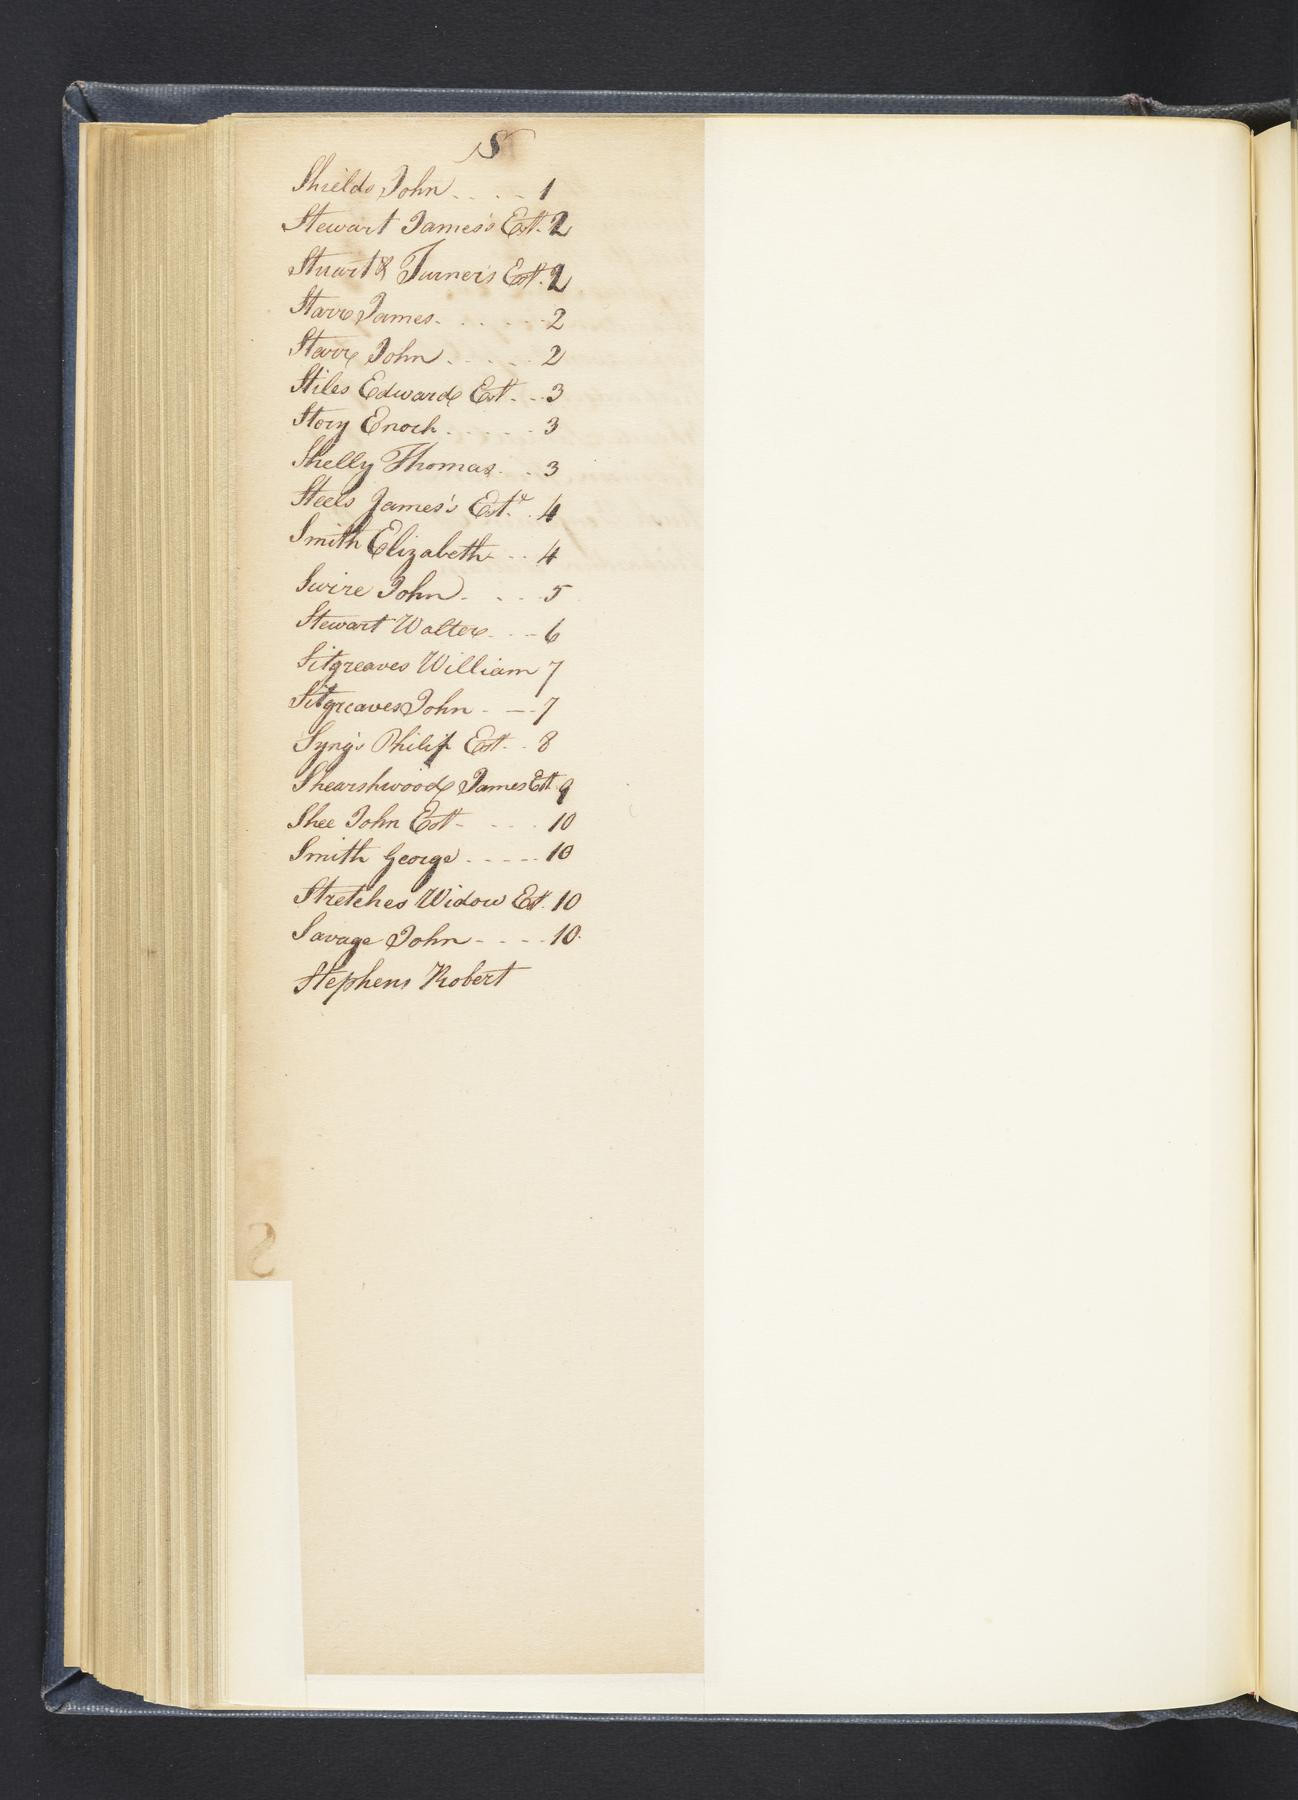 S
Shields John . . . . 1
Stewart James's Est. 2
Stuart & Turner's Est. 2
Starr James. . . . . . 2
Starr John . . . . . 2
Stiles Edward Est. . . 3
Story Enoch . . . . . 3
Shelly Thomas . . 3
Steels James's Este. . 4
Smith Elizabeth . . . 4
Swire John . . . . 5
Stewart Walter . . . 6
Sitgreaves William 7
Sitgreaves John - — - 7
Syng's Philip Est. . . 8
Shearshwood James Est 9
Shee John Est - . . . 10
Smith George . . . . . 10
Stretches Widow Est. 10
Savage John - - - - 10.
Stephens Robert
S